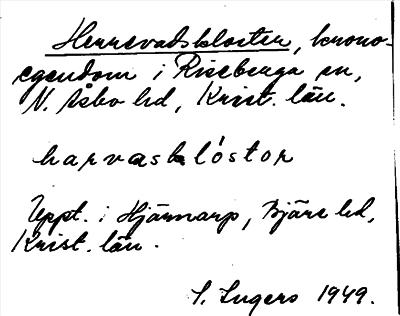 Herrevadskloster, krono-
egendom i Riseberga sn,
N. Åsbo hd, Krist. län.
harvasklóstor
Uppt. i Hjärnarp, Bjäre hd,
Krist. län.
S. Ingers 1949.